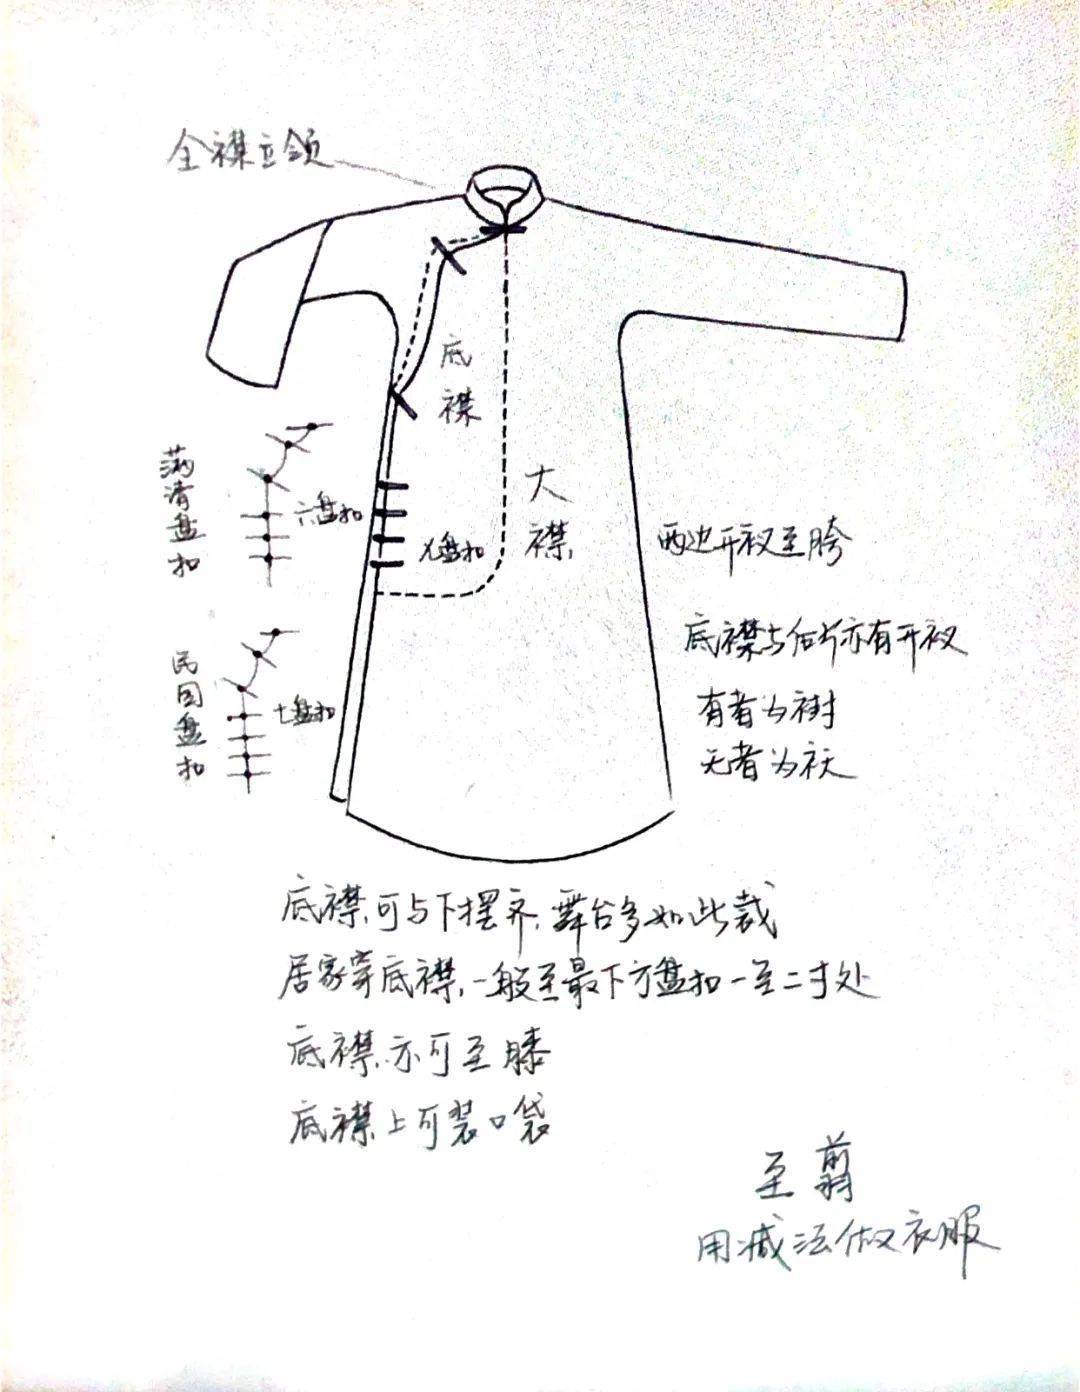 全襟立领
底
襟
大
襟
满清盘扣
六盘扣
盘扣
两边开衩至胯
民国盘扣
七盘扣
底襟与后片亦有开衩
有者为
无者为
底襟可与下摆齐，舞台多如此裁
居家穿底襟，一般至最下方盘扣一至二寸处
底襟亦可至膝
底襟上可装口袋
至翦
用减法做衣服